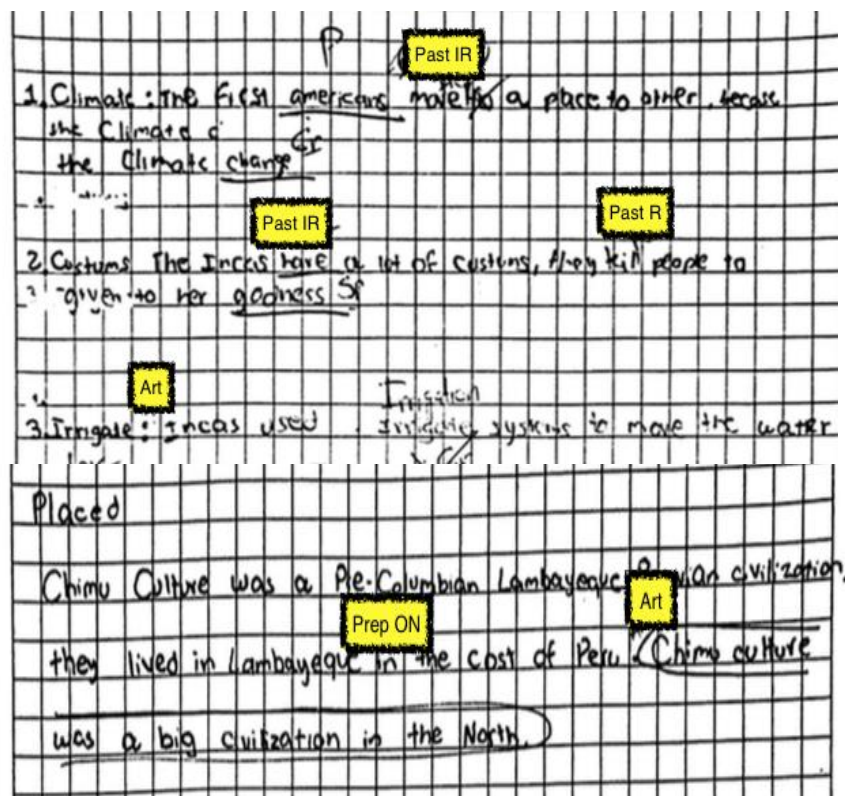 P
Past IR
1. Climate: The first americans move to a place to other, becase
the Climate c
the Climate change Cr
Past IR Past R
2. Custums The Incas have a lot of custums, they kill people to
given to her godness Sr
Art
Irrigation
3. Irrigate: Incas used Irrigate systems to move the water
Placed
Chimu Culture was a Pre-Columbian Lambayeque civilization,
Prep ON Art
they lived in Lambayeque in the cost of Peru. Chimu culture
was a big civilization in the North.